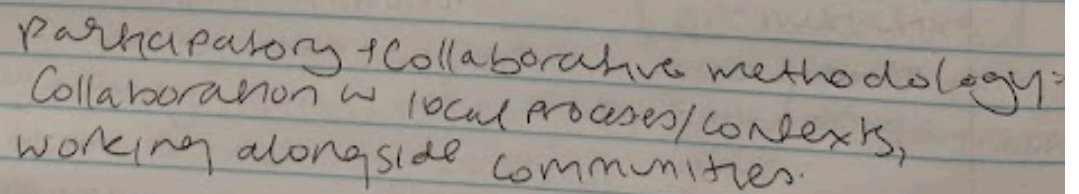 Participatory + Collaborative methodology:
Collaboration w local processes/contexts,
working alongside communities.